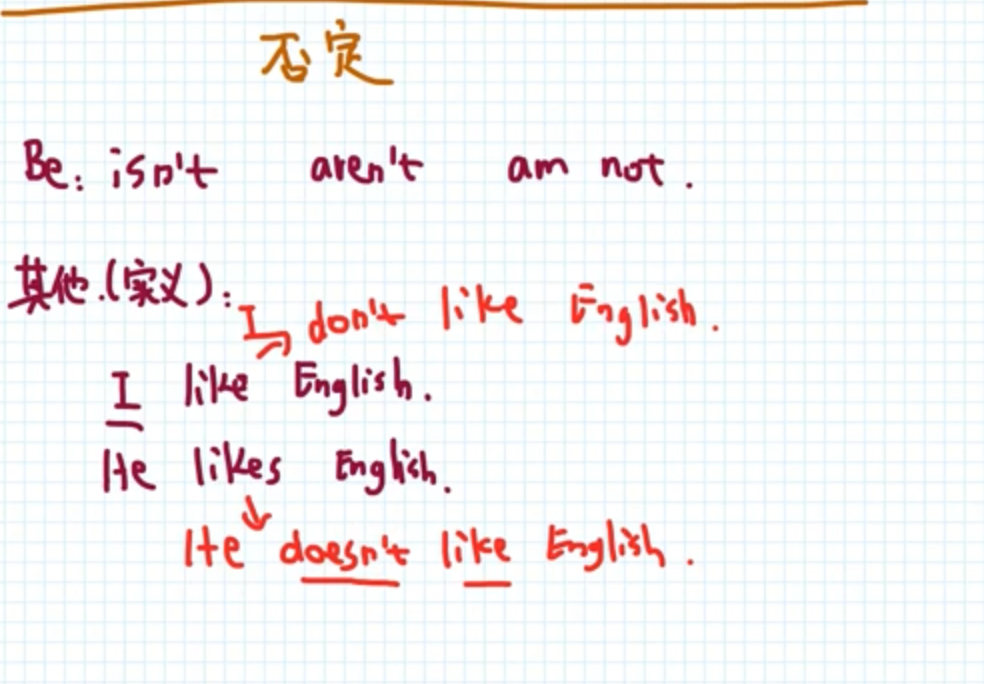 否定
Be: isn't aren't am not.
其他.(实义):
I don't like English.
I like English.
He likes English.
He doesn't like English.